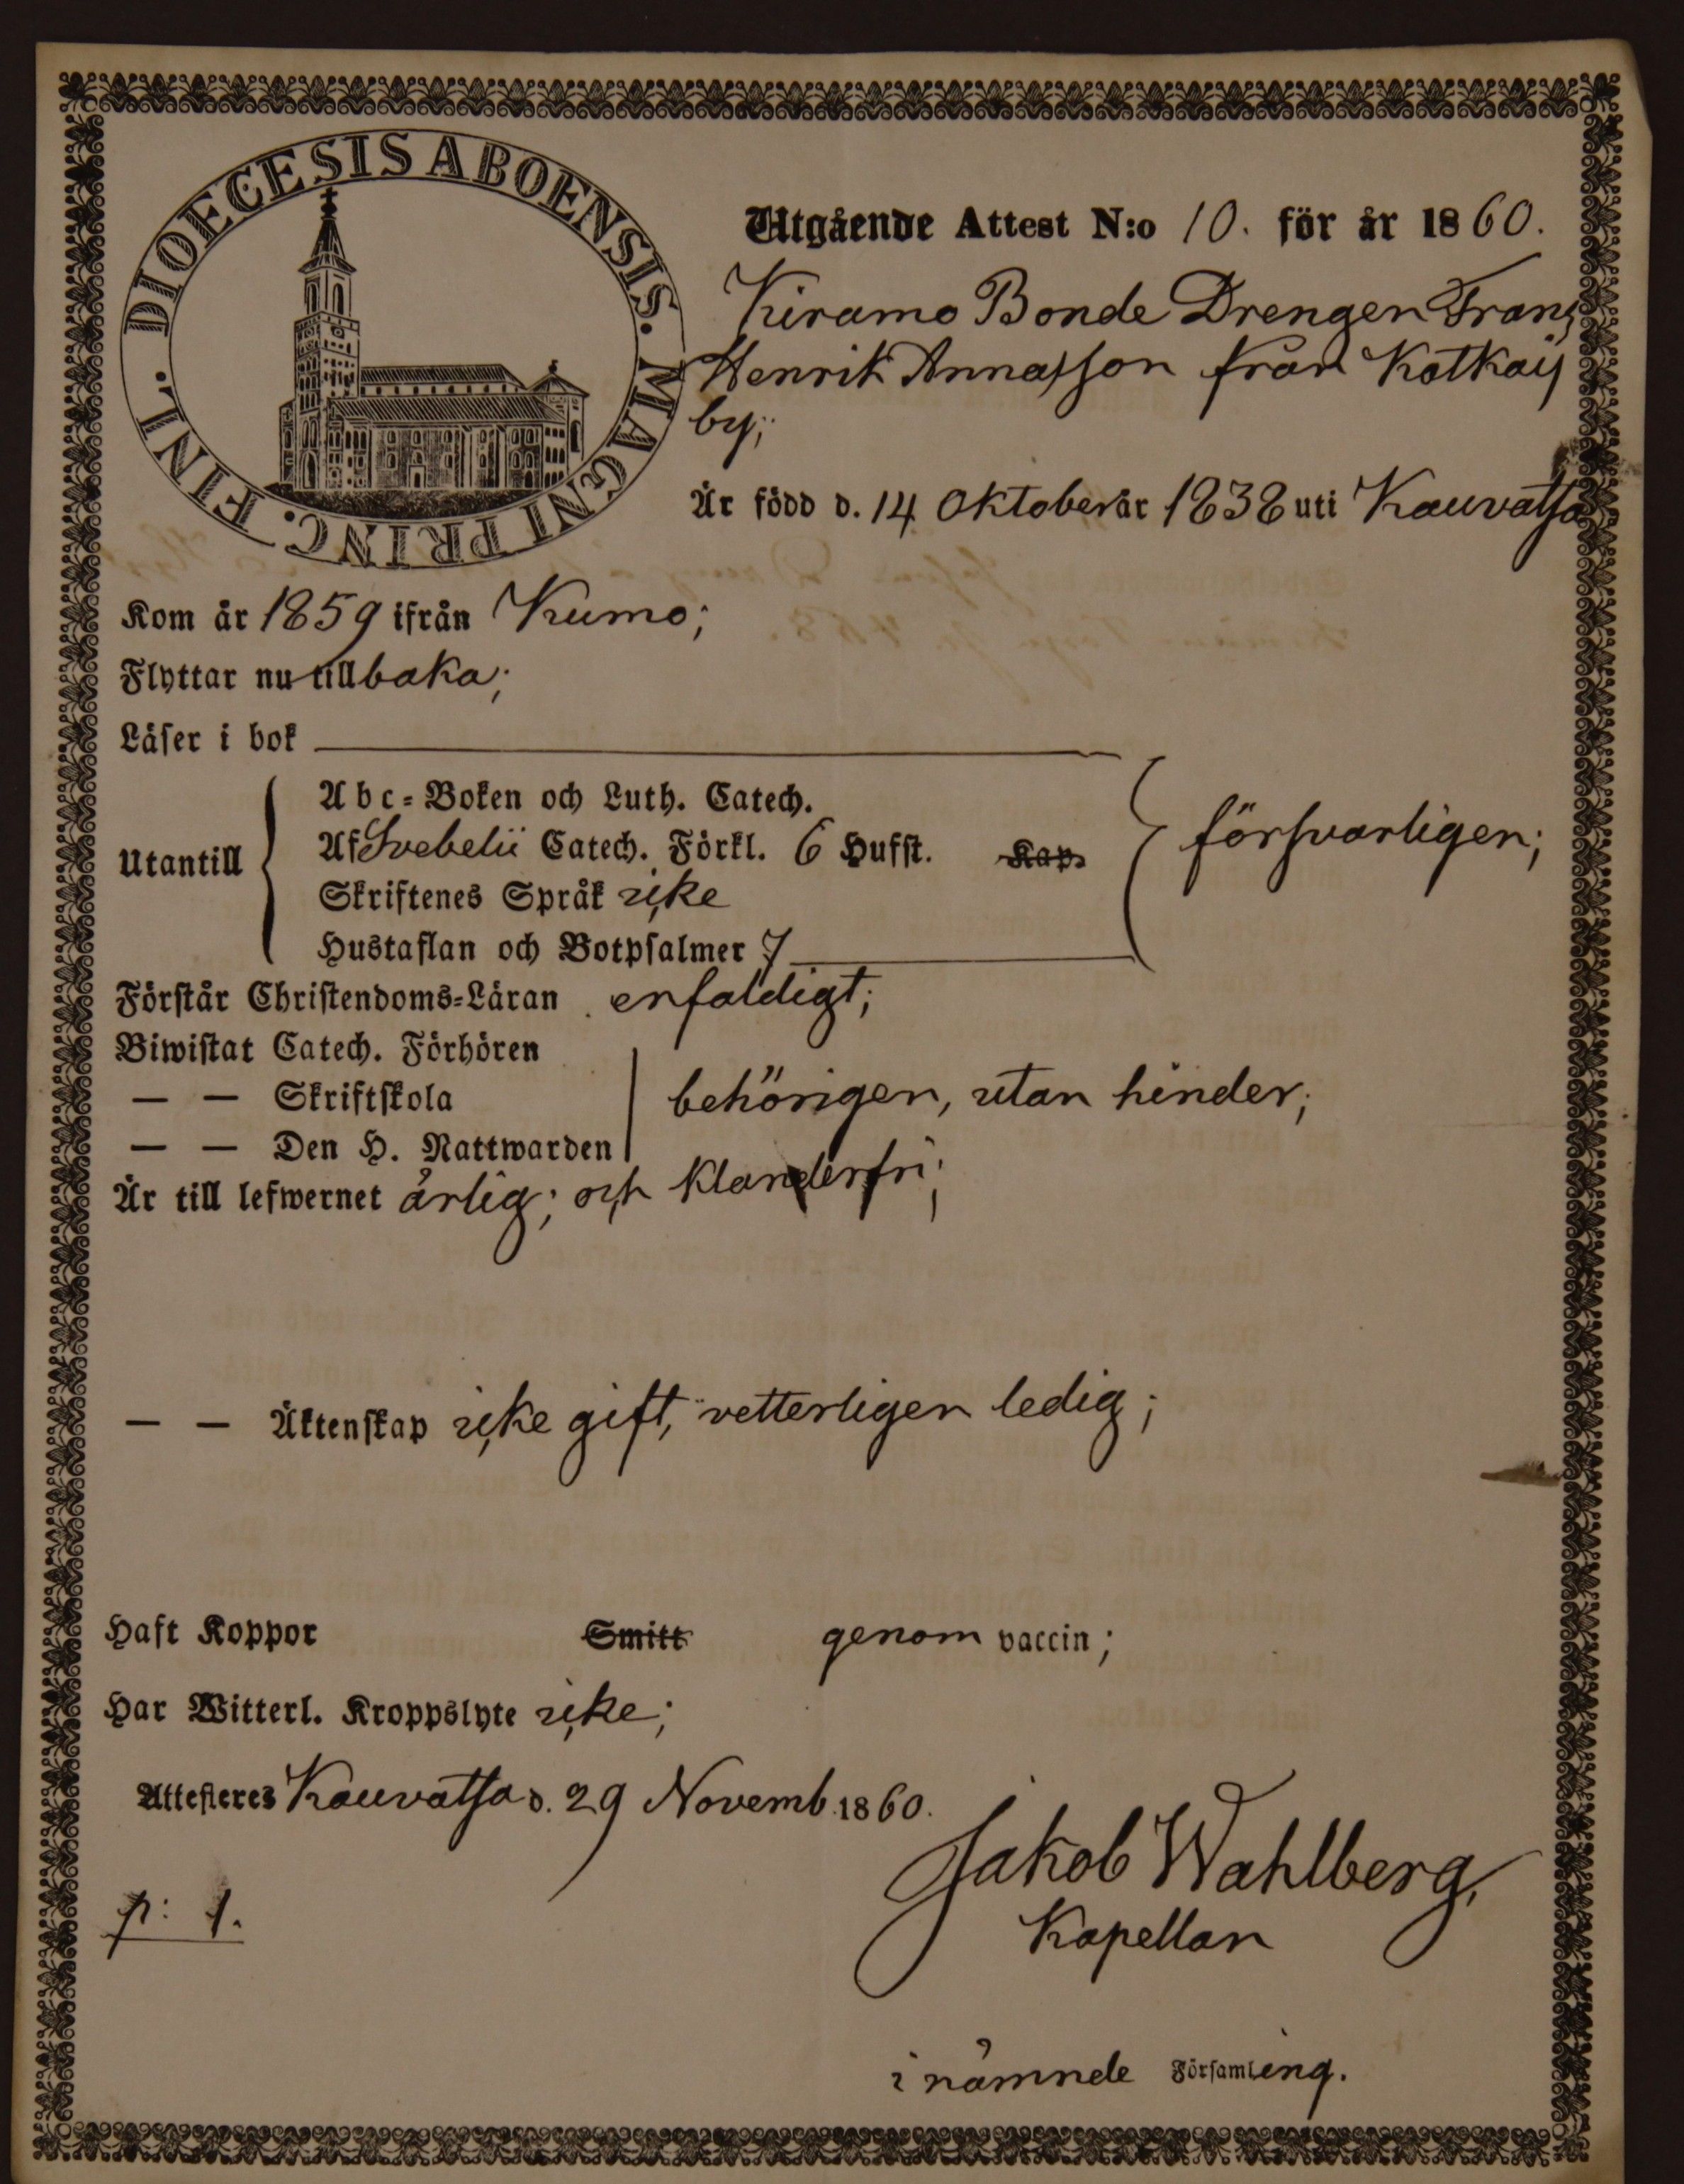 DIOECESIS ABOENSIS. MAGNI PRINC. FINL.
Utgående Attest N:o 10. för år 1860.
Kiramo Bonde Drengen Frans
Henrik Annasson från Kotkay
by;
Är född d. 14 Oktober år 1838 uti Kauvatsa
Kom år 1859 ifrån Kumo;
Flyttar nu tillbaka;
Läser i bok
Abc-Boken och Luth. Catech.
Utantill Af Svebelii Catech. Förkl. 6 Hufst. Kap. försvarligen;
Skriftenes Språk icke
Hustaflan och Botpsalmer 7
Förstår Christendoms-Läran enfaldigt;
Biwistat Catech. Förhören
— — Skriftskola behörigen, utan hinder;
— — Den H. Nattwarden
Är till lefwernet ärlig; och klanderfri;
— — Äktenskap icke gift, vetterligen ledig;
Haft Koppor Smitt genom vaccin;
Har Witterl. Kroppslyte icke;
Attesteres Kauvatsa d. 29 Novemb. 1860.
Jakob Wahlberg,
p: 1.
Kapellan
i nämnde Församling.